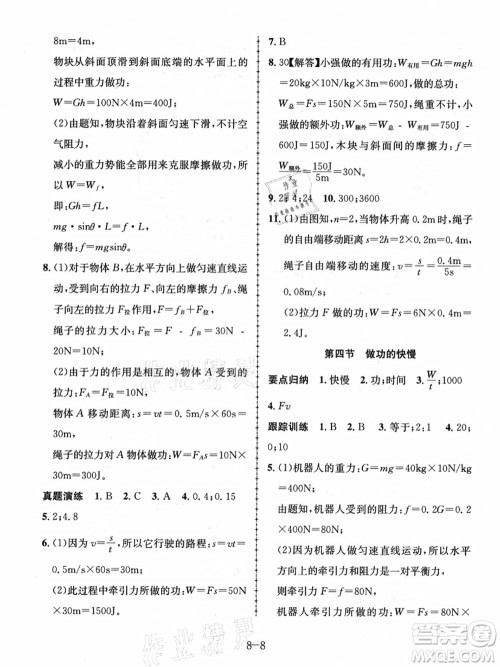 8m=4m,
物块从斜面顶滑到斜面底端的水平面上
的过程中重力做功:
W=Gh=100N×4m=400J;
(2)由题知,物块沿斜面匀速下滑,不计空
气阻力,
减小的重力势能全部用来克服摩擦做功,
W=Wf,
即:Gh=fL,
mg·sinθ·L=f·L,
解得:f=mg·sinθ。
8.(1)对于物体B,在水平方向上做匀速直线运
动,
其水平方向受到地面的摩擦力fB、绳子的
拉力F拉作用,
绳子的拉力F拉=F-fB=30N-10N=
20N;
(2)由于力的作用是相互的,物体A所受的
拉力F拉=20N,
物体A移动距离:s=vt=0.3m/s×5s=
1.5m,
绳子的拉力F拉对A做功:W=F拉s=20N×
1.5m=30J。
真题演练 1.B 2.C 3.A 4.0.4;0.15
5.2;4.8
6.(1)因为v=s/t,所以它行驶的路程:s=vt
=0.5m/s×60s=30m;
(2)此过程中牵引力所做的功:W=Fs=50N
×30m=1500J。
7.B
8.30【解答】小强做的有用功:W有用=Gh=mgh
=20kg×10N/kg×3m=600J,小强做的总功:
W总=Fs=150N×5m=750J,绳重不计,小
强做的额外功:W额外=W总-W有用=750J
-600J=150J,木块与斜面间的摩擦力:f=
W额外/s=150J/5m=30N。
9.24;24 10.300;3600
11.(1)由图知,n=2,当物体升高0.2m时,绳子
的自由端移动距离:s=nh=2×0.2m=
0.4m,绳子自由端移动的速度:v=s/t=0.4m/5s
=0.08m/s;
(2)拉力做的功:W=Fs=6N×0.4m=
2.4J。
第四节 做功的快慢
要点归纳 1.快慢 2.功 3.W/t;1000
4.Fv
跟踪训练 1.B 2.B 3.等于;2:1 4.20;
0;10
5.(1)机器人的重力:G=mg=8kg×10N/kg
=80N,
因为机器人在平直地面上做匀速直线运
动,所以水平方向上机器人受到的牵引力和
阻力是一对平衡力,
则机器人的牵引力:F=f=0.1G=0.1×
80N=8N,
机器人牵引力所做的功:W=Fs=8N×10m
8-8